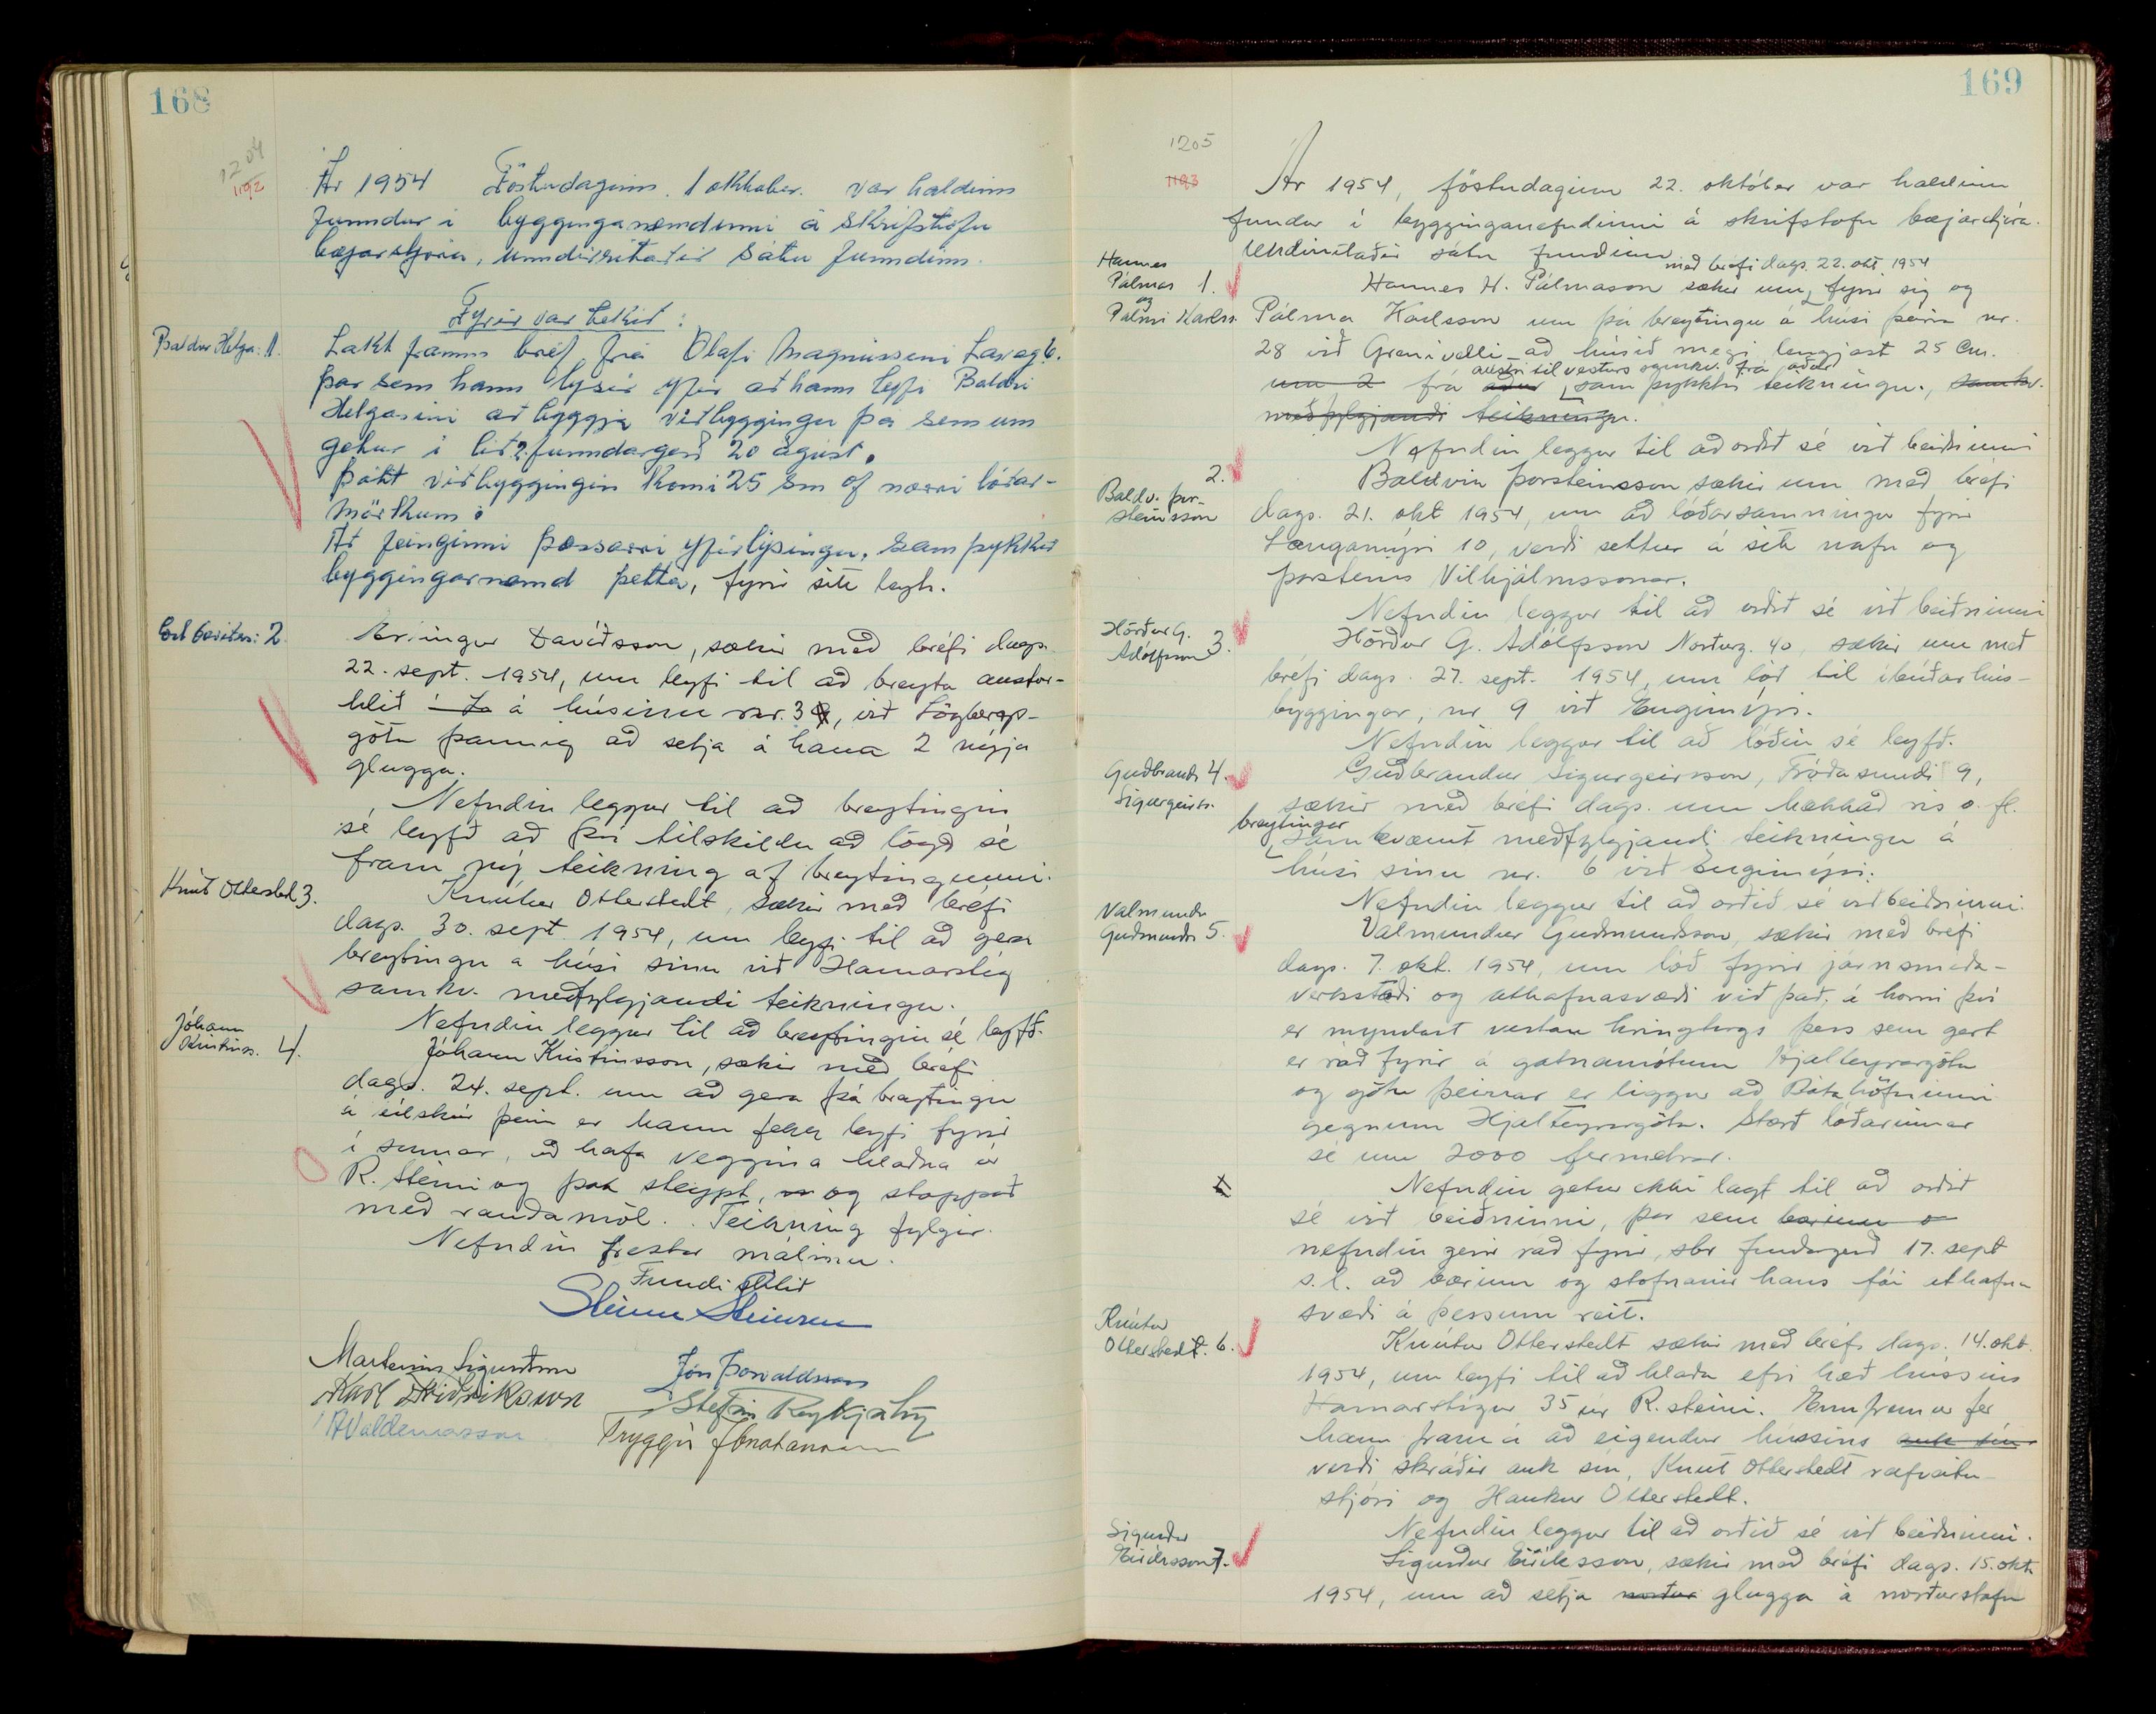 168
1204
1192
Ár 1954 Föstudaginn. 1 okktober. var haldinn
funndur í bygginganemdinni á Skrifstofu
bæjarstjóra, unndirritaðir Sátu funndinn.
Fyrir var tekið:
Baldur Helga: 1.
Lakt framm bréf frá Olafi Magnússini Laxag 6.
þar sem hann lýsir yfir að hann leyfi Baldri
Helgasini að byggja viðbyggingu þá sem um
getur í lið 2. funndargerð 20 ágúst.
Þótt viðbyggingin komi 25 sm of nærri lóðar-
mörkum.
Að feinginni þessarri yfirlýsingu, samþykkir
byggingarnemd þetta, fyrir sitt leyti.
2.
Erlingur Davíðsson, sækir með bréfi dags.
22. sept. 1954, um leyfi til að breyta austur-
hlið á húsinu nr. 39, við Lögbergs-
götu þannig að setja á hana 2 nýja
glugga.
Nefndin leggur til að breytingin
sé leyfð að því tilskildu að lögð sé
fram ný teikning af breytingunni.
Knút Otterstedt 3.
Knútur Otterstedt, sækir með bréfi
dags. 30. sept 1954, um leyfi til að gera
breytingu á húsi sínu við Hamarstíg
samkv. meðfylgjandi teikningu.
Nefndin leggur til að breytingin sé leyfð.
Jóhann
Kristinss. 4.
Jóhann Kristinsson, sækir með bréfi
dags. 24. sept. um að gera þá breytingu
á bílskúr þeim er hann fekk leyfi fyrir
í sumar, að hafa veggina hlaðna úr
R. Steini og þak steypt, og stoppað
með rauðamöl. Teikning fylgir.
Nefndin frestar málinu.
Fundi slitið
Steinn Steinsen
Marteinn Sigurðsson
Jón Þorvaldsson
Karl Friðriksson
Stefán Reykjalín
A Valdemarsson
Tryggvi Jónatansson
169
1205
1193
Ár 1954, föstudaginn 22. október var haldinn
fundur í bygginganefndinni á skrifstofu bæjarstjóra.
Undirritaðir sátu fundinn
með bréfi dags. 22. okt 1954
Hannes
Pálmas 1.
og
Pálmi Karlss.
Hannes H. Pálmason sækir um, fyrir sig og
Pálma Karlsson um þá breytingu á húsi þeirra nr.
28 við Grænivelli að húsið megi lengjast 25 cm.
austri til vesturs samkv. frá áður
um 2 frá áður samþykktri teikningu., samkv.
meðfylgjandi teikningu.
Nefndin leggur til að orðið sé við beiðninni
2.
Baldv. Þor-
steinsson
Baldvin Þorsteinsson sækir um með bréfi
dags. 21. okt 1954, um að lóðarsamningur fyrir
Langamýri 10, verði settur á sitt nafn og
Þorsteins Vilhjálmssonar.
Nefndin leggur til að orðið sé við beiðninni
Hörður G.
Adólfsson 3.
Hörður G. Adólfsson Norðurg. 40, sækir um með
bréfi dags. 27. sept. 1954, um lóð til íbúðarhús-
byggingar, nr 9 við Engimýri.
Nefndin leggur til að lóðin sé leyfð.
Guðbrandr 4.
Sigurgeirss.
Guðbrandur Sigurgeirsson, Fróðasundi 9,
sækir með bréfi dags. um hækkað ris o. fl.
breytingar
samkvæmt meðfylgjandi teikningu á
húsi sínu nr. 6 við Engimýri.
Nefndin leggur til að orðið sé við beiðninni.
Valmundr
Guðmundss 5.
Valmundur Guðmundsson, sækir með bréfi
dags. 7. okt. 1954, um lóð fyrir járnsmíða-
verkstæði og athafnasvæði við það, á horni því
er myndast vestan hringtorgs þess sem gert
er ráð fyrir á gatnamótum Hjalteyrargötu
og götu þeirrar er liggur að Bátahöfninni
gegnum Hjalteyrargötu. Stærð lóðarinnar
sé um 2000 fermetrar.
Nefndin getur ekki lagt til að orðið
sé við beiðninni, þar sem bærinn o
nefndin gerir ráð fyrir, sbr fundargerð 17. sept
s.l. að bærinn og stofnanir hans fái athafna
svæði á þessum reit.
Knútur
Otterstedt. 6.
Knútur Otterstedt sækir með bréfi dags. 14. okt.
1954, um leyfi til að hlaða efri hæð hússins
Hamarstígur 35 úr R. steini. Ennfremur fer
hann fram á að eigendur hússins auk sín
verði skráðir auk sín, Knút Otterstedt rafveitu-
stjóri og Haukur Otterstedt.
Nefndin leggur til að orðið sé við beiðninni.
Sigurður
Eiríksson 7.
Sigurður Eiríksson, sækir með bréfi dags. 15. okt.
1954, um að setja norður glugga á norðurstafn